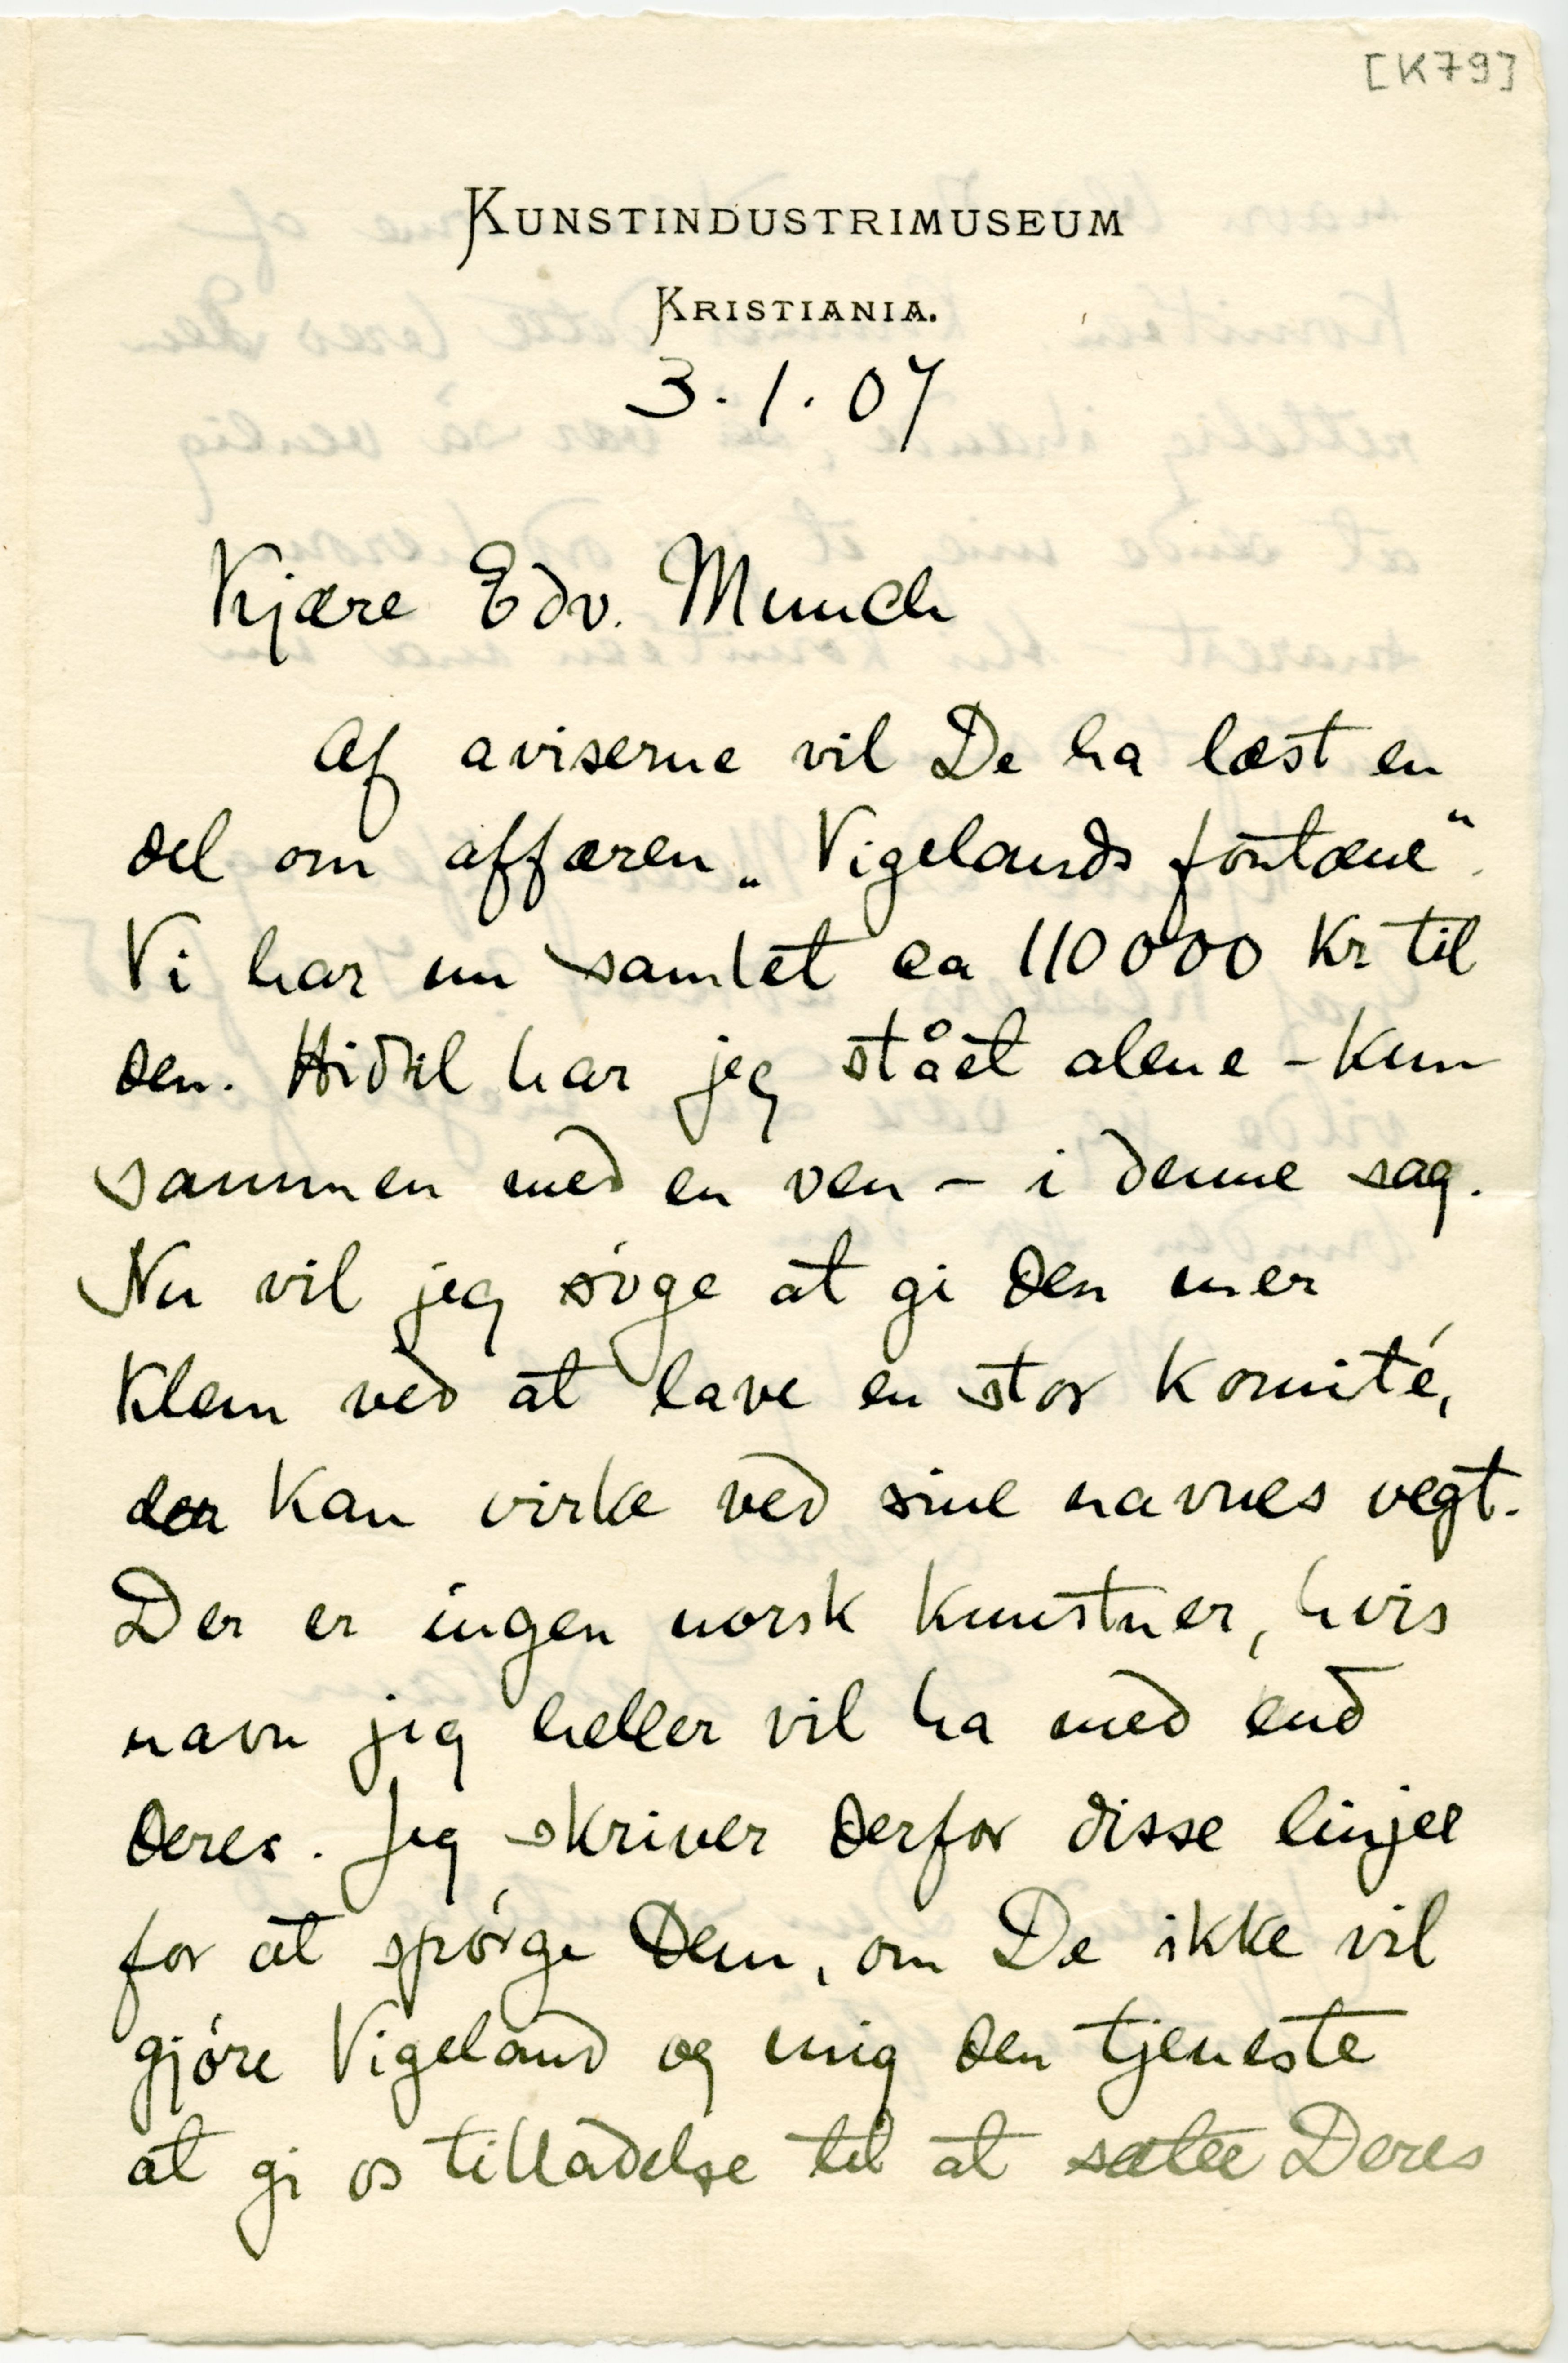 [K79]
KUNSTINDUSTRIMUSEUM
KRISTIANIA.
3. 1. 07
Kjære Edv. Munch
Af aviserne vil De ha læst en
del om affæren „Vigelands fontæne“.
Vi har nu samlet ca 110000 Kr til
den. Hidtil har jeg stået alene – kun
sammen med en ven – i denne sag.
Nu vil jeg søge at gi den mer
klem ved at lave en stor komité,
der kan virke ved sine navnes vegt.
Der er ingen norsk kunstner, hvis
navn jeg heller vil ha med end
deres. Jeg skriver derfor disse linjer
for at spørge Dem, om De ikke vil
gjøre Vigeland og mig den tjeneste
at gi os tilladelse til at sætte Deres